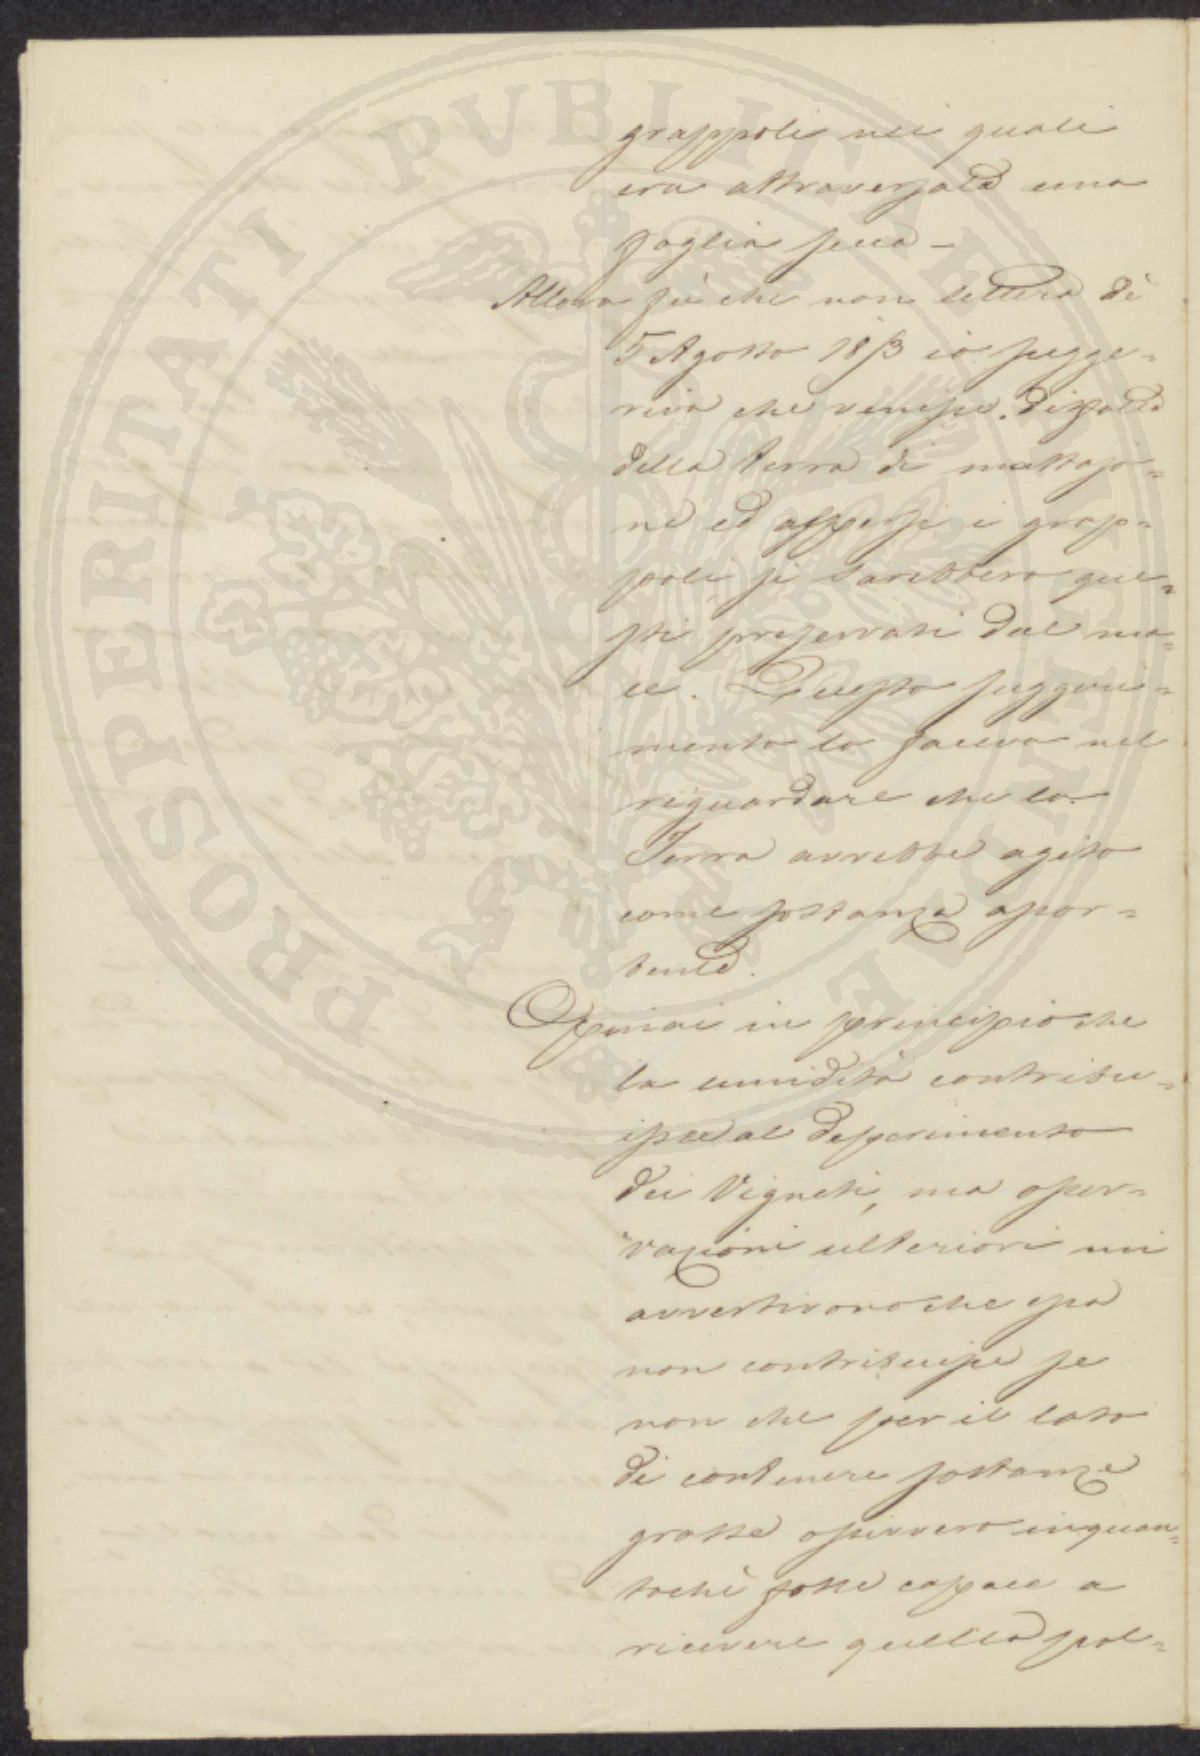 grappoli nei quali
era attraversata una
foglia secca –
Allora fù che con lettera di
5 Agosto 1853 io sugge=
riva che venisse
della terra di mattajo=
ne ed aspersi i grap=
poli, si sarebbero que=
sti preservati dal ma=
le. Questo suggeri=
mento lo faceva nel
riguardare che la
Terra avrebbe agito
come sostanza assor=
bente.
Opinai in principio che
la umidità contribu=
isse al deperimento
dei Vigneti, ma osser=
vazioni ulteriori mi
avvertirono che essa
non contribuisse se
non che per il lato
di contenere sostanze
grasse ossivvero inquan=
tochè fosse capace a
ricevere quella pol=
PROSPERITATI PVBLICAE AVGENDAE